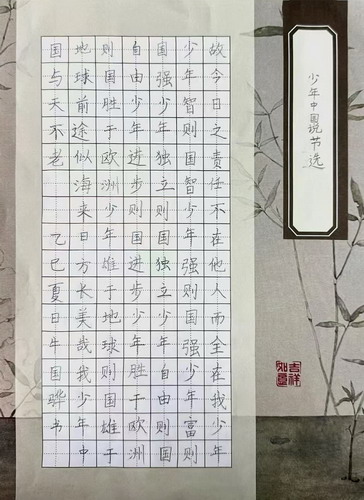 少年中国说节选
故今日之责任不在他人而全在我少年
少年智则国智少年强则国强少年富则
国强少年独立则国独立少年自由则国
自由少年进步则国进步少年胜于欧洲
则国胜于欧洲少年雄于地球则国雄于
地球前途似海来日方长美哉我少年中
国与天不老 乙巳夏日牛国骅书
吉祥如意